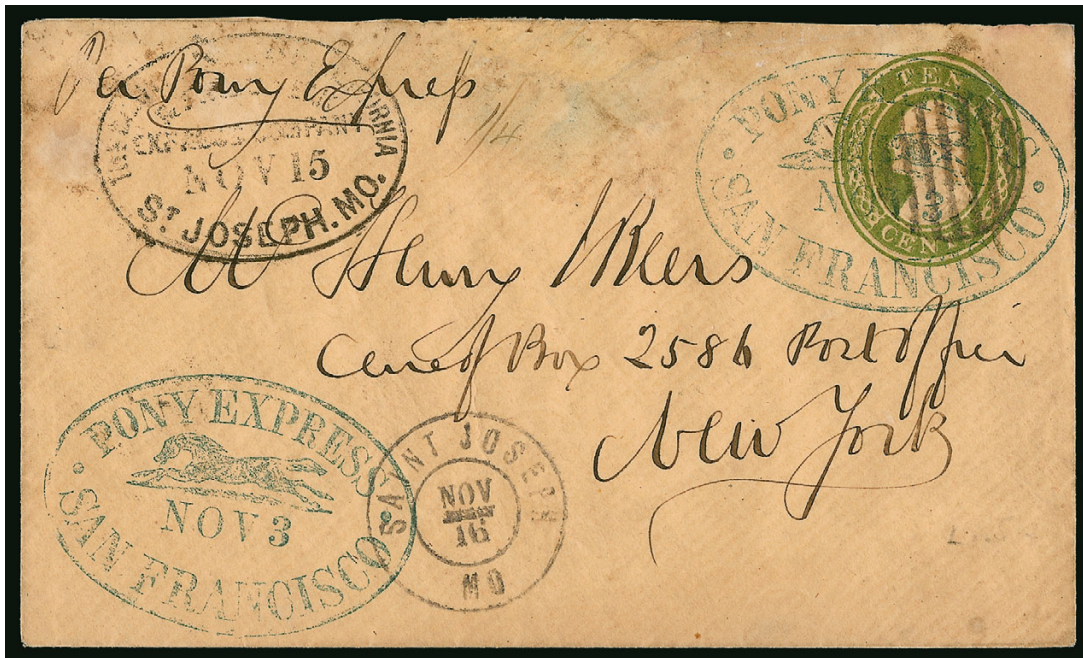 Per Pony Express
1/4
EXPRESS COMPANY
NOV 15
ST JOSEPH. MO.
PONY
SAN FRANCISCO
TEN
CENT
Mr Henry
Care of Box 2586 Post Office
New York
PONY EXPRESS
NOV 3
SAN FRANCISCO
SAINT JOSEPH
NOV
16
MO